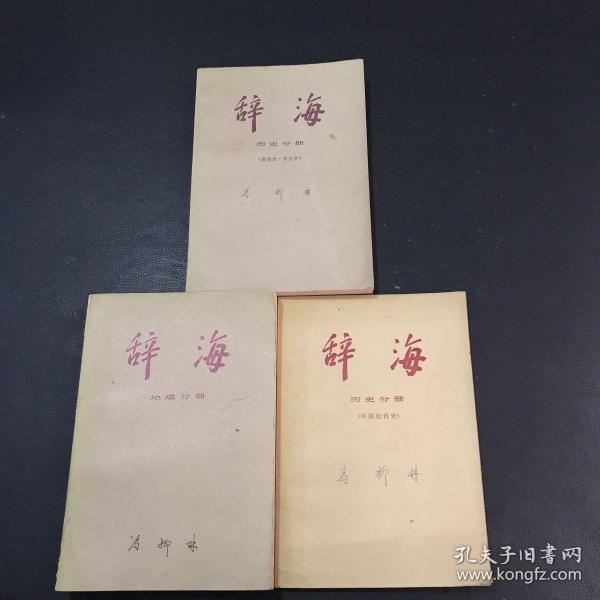 辞海
历史分册
(世界史·考古学)
辞海
地理分册
冯柳
辞海
历史分册
(中国近代史)
冯柳
孔夫子旧书网
www.kongfz.com